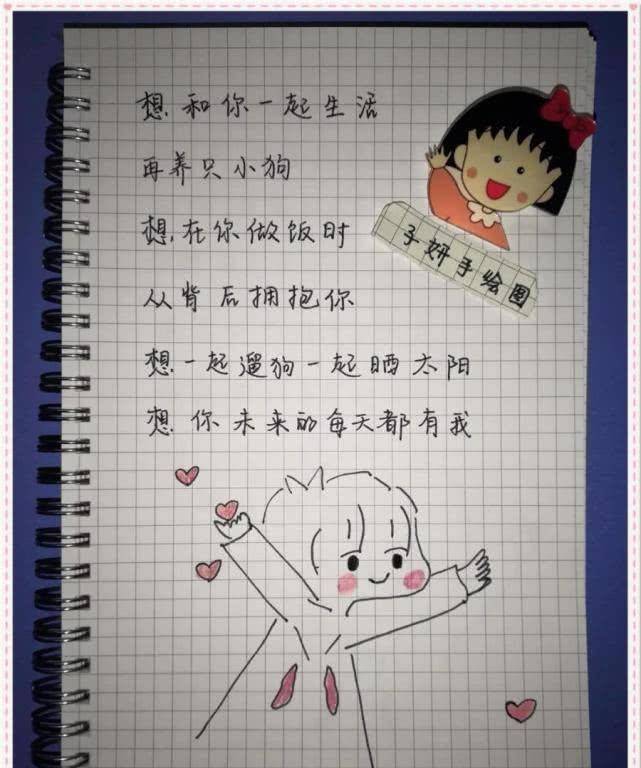 想和你一起生活
再养只小狗
想在你做饭时
从背后拥抱你
想一起遛狗一起晒太阳
想你未来的每天都有我
子妍手绘图